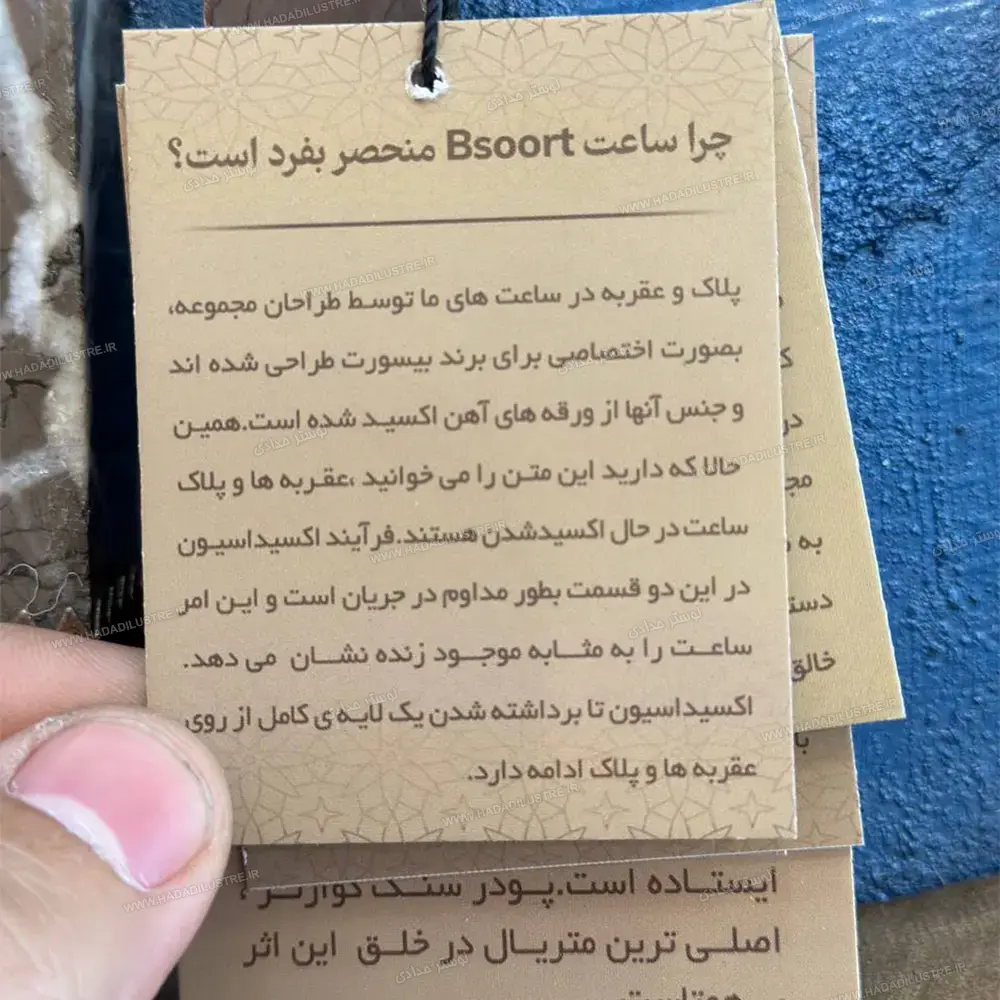 چرا ساعت Bsoort منحصر بفرد است؟
پلاک و عقربه در ساعت های ما توسط طراحان مجموعه،
بصورت اختصاصی برای برند بیسورت طراحی شده اند
و جنس آنها از ورقه های آهن اکسید شده است.همین
حالا که دارید این متن را می خوانید ،عقربه ها و پلاک
ساعت در حال اکسیدشدن هستند.فرآیند اکسیداسیون
در این دو قسمت بطور مداوم در جریان است و این امر
ساعت را به مثابه موجود زنده نشان می دهد.
اکسیداسیون تا برداشته شدن یک لایه ی کامل از روی
عقربه ها و پلاک ادامه دارد.
در
به
خالق
با
ایستاده است.پودر سنگ کوارتز،
اصلی ترین متریال در خلق این اثر
WWW.HADADILUSTRE.IR
لوستر هدادی